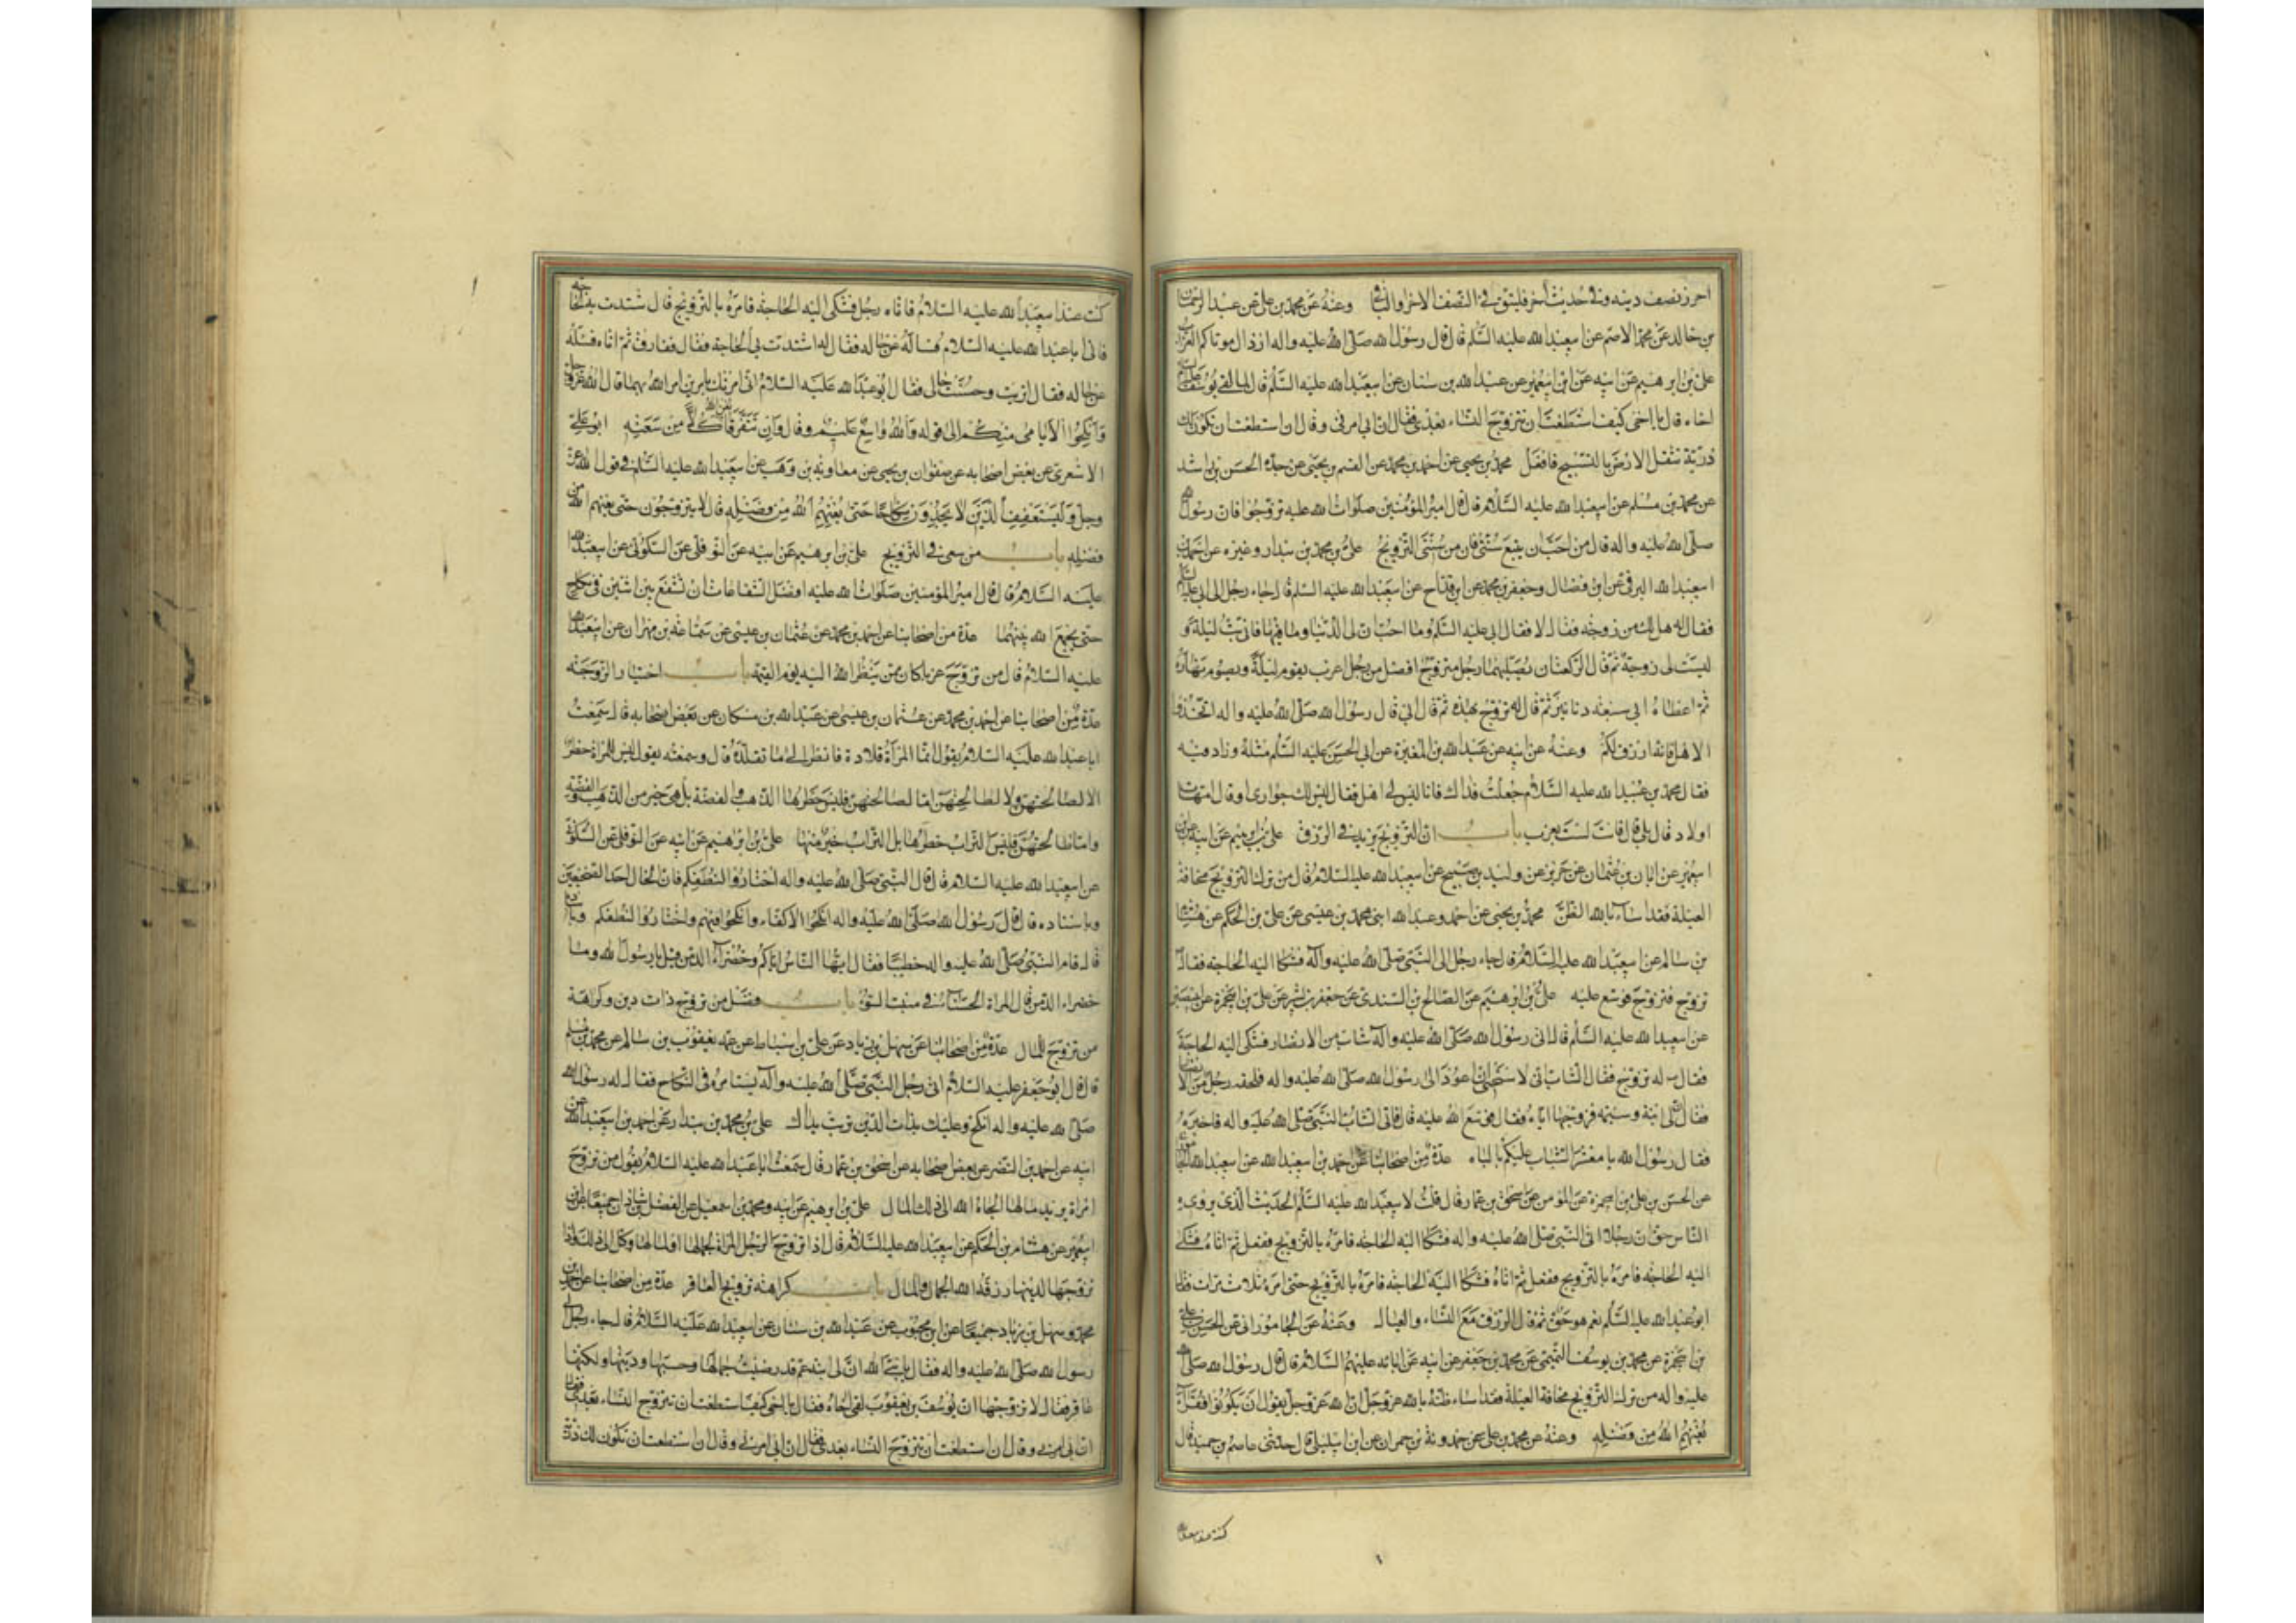 احرز نصف دينه وفى حديث آخر فليتق الله فى النصف الآخر او الباقى وعنه عن محمد بن على عن عبد الرحمن
بن خالد عن محمد الاصم عن ابى عبد الله عليه السلم قال قال رسول الله صلى الله عليه واله ارذال موتاكم العزاب
على بن ابرهيم عن ابيه عن ابن ابى عمير عن عبد الله بن سنان عن ابى عبد الله عليه السلم قال لما لقى يوسف
اخاه قال يا اخى كيف استطعت ان تتزوج النساء بعدى فقال ان ابى امرنى وقال ان استطعت ان تكون لك
ذرية تثقل الارض بالتسبيح فافعل محمد بن يحيى عن احمد بن محمد عن القسم بن يحيى عن جده الحسن بن راشد
عن محمد بن مسلم عن ابى عبد الله عليه السلام قال قال امير المؤمنين صلوات الله عليه تزوجوا فان رسول الله
صلى الله عليه واله قال من احب ان يتبع سنتى فان من سنتى التزويج على بن محمد بن بندار وغيره عن احمد بن
ابى عبد الله البرقى عن ابن فضال وجعفر بن محمد عن ابن قداح عن ابى عبد الله عليه السلم قال جاء رجل الى ابى عليه السلم
فقال له هل لك من زوجة فقال لا فقال ابى عليه السلم وما احب ان لى الدنيا وما فيها فانى بت ليلة و
ليست لى زوجة ثم قال الركعتان يصليهما رجل متزوج افضل من رجل اعزب يقوم ليلة ويصوم نهاره
ثم اعطاه ابى سبعة دنانير ثم قال له تزوج بهذه ثم قال ابى قال رسول الله صلى الله عليه واله اتخذوا
الاهل فانه ارزق لكم وعنه عن ابيه عن عبد الله بن المغيرة عن ابى الحسن عليه السلم مثله وزاد فيه
فقال محمد بن عبيد الله عليه السلام جعلت فداك فانا ليس لى اهل فقال اليس لك جوارى او قال امهات
اولاد قال بلى قال فانت لست بعزب باب ان التزويج يزيد فى الرزق على بن ابرهيم عن ابيه عن ابن
ابى عمير عن ابان بن عثمان عن حريز عن وليد بن صبيح عن ابى عبد الله عليه السلام قال من ترك التزويج مخافة
العيلة فقد اساء بالله الظن محمد بن يحيى عن احمد وعبد الله ابنى محمد بن عيسى عن على بن الحكم عن هشام
بن سالم عن ابى عبد الله عليه السلام قال جاء رجل الى النبى صلى الله عليه وآله فشكا اليه الحاجة فقال
تزوج فتزوج فوسع عليه على بن ابرهيم عن الصالح بن السندى عن جعفر بن بشير عن على بن ابى حمزة عن ابى بصير
عن ابى عبد الله عليه السلم قال اتى رسول الله صلى الله عليه وآله شاب من الانصار فشكى اليه الحاجة
فقال له تزوج فقال الشاب انى لاستحيى ان اعود الى رسول الله صلى الله عليه واله فلحقه رجل من الانصار
فقال ان لى ابنة وسيمة فزوجها اياه فقال فوسع الله عليه قال فاتى الشاب النبى صلى الله عليه واله فاخبره
فقال رسول الله يا معشر الشباب عليكم بالباه عدة من اصحابنا عن احمد بن ابى عبد الله عن ابى عبد الله الجامورانى
عن الحسن بن على بن ابى حمزة عن المؤمن عن اسحق بن عمار قال قلت لابى عبد الله عليه السلم الحديث الذى يرويه
الناس حق ان رجلا اتى النبى صلى الله عليه واله فشكا اليه الحاجة فامره بالتزويج ففعل ثم اتاه فشكى
اليه الحاجة فامره بالتزويج ففعل ثم اتاه فشكا اليه الحاجة فامره بالتزويج حتى امره ثلاث مرات فقال
ابو عبد الله عليه السلم نعم هو حق ثم قال الرزق مع النساء والعيال وعنه عن الجامورانى عن الحسن بن على
بن ابى حمزة عن محمد بن يوسف التميمى عن محمد بن جعفر عن ابيه عن ابائه عليهم السلام قال قال رسول الله صلى الله
عليه واله من ترك التزويج مخافة العيلة فقد اساء ظنه بالله عز وجل ان الله عز وجل يقول ان يكونوا فقراء
يغنهم الله من فضله وعنه عن محمد بن على عن حمدويه بن عمران عن ابن ابى ليلى قال حدثنى عاصم بن حميد قال
كنت عند ابى عبد الله
كنت عند ابى عبد الله عليه السلام فاتاه رجل فشكى اليه الحاجة فامره بالتزويج قال فاشتدت به الحاجة
فاتى ابا عبد الله عليه السلام فساله عن حاله فقال له اشتدت بى الحاجة فقال ففارق ثم اتاه فسئله
عن حاله فقال اثريت وحسنت حالى فقال ابو عبد الله عليه السلام انى امرتك بامرين امر الله بهما قال الله عز وجل
وانكحوا الايامى منكم الى قوله والله واسع عليم وقال وان يتفرقا يغن الله كلا من سعته ابو على
الاشعرى عن بعض اصحابه عن صفوان بن يحيى عن معاوية بن وهب عن ابى عبد الله عليه السلم فى قول الله عز
وجل وليستعفف الذين لا يجدون نكاحا حتى يغنيهم الله من فضله قال لا يتزوجون حتى يغنيهم الله من
فضله باب من سعى فى التزويج على بن ابرهيم عن ابيه عن النوفلى عن السكونى عن ابى عبد الله
عليه السلام قال قال امير المؤمنين صلوات الله عليه افضل الشفاعات ان تشفع بين اثنين فى نكاح
حتى يجمع الله بينهما عدة من اصحابنا عن احمد بن محمد عن عثمان بن عيسى عن سماعة بن مهران عن ابى عبد الله
عليه السلام قال من تزوج عزبا كان ممن ينظر الله اليه يوم القيمة باب اختيار الزوجة
عدة من اصحابنا عن احمد بن محمد عن عثمان بن عيسى عن عبد الله بن مسكان عن بعض اصحابه قال سمعت
ابا عبد الله عليه السلام يقول انما المراة قلادة فانظر الى ما تقلده قال وسمعته يقول ليس للمراة خطر
لا لصالحتهن ولا لطالحتهن اما لصالحتهن فليس خطرها الذهب والفضة بل هى خير من الذهب والفضة
واما طالحتهن فليس التراب خطرها بل التراب خير منها على بن ابرهيم عن ابيه عن النوفلى عن السكونى
عن ابى عبد الله عليه السلام قال قال النبى صلى الله عليه واله اختاروا لنطفكم فان الخال احد الضجيعين
وباسناده قال قال رسول الله صلى الله عليه واله انكحوا الاكفاء وانكحوا فيهم واختاروا لنطفكم وباسناده
قال قام النبى صلى الله عليه واله خطيبا فقال ايها الناس اياكم وخضراء الدمن قيل يا رسول الله وما
خضراء الدمن قال المراة الحسناء فى منبت السوء باب فضل من تزوج ذات دين وكراهة
من تزوج للمال عدة من اصحابنا عن سهل بن زياد عن على بن اسباط عن عمه يعقوب بن سالم عن محمد بن مسلم
قال قال ابو جعفر عليه السلام اتى رجل النبى صلى الله عليه وآله يستامره فى النكاح فقال له رسول الله
صلى الله عليه واله انكح وعليك بذات الدين تربت يداك على بن محمد بن بندار عن احمد بن ابى عبد الله عن
ابيه عن احمد بن النضر عن بعض اصحابه عن اسحق بن عمار قال سمعت ابا عبد الله عليه السلام يقول من تزوج
امراة يريد مالها الجاه الله الى ذلك المال على بن ابرهيم عن ابيه ومحمد بن اسمعيل عن الفضل بن شاذان جميعا عن ابن
ابى عمير عن هشام بن الحكم عن ابى عبد الله عليه السلام قال اذا تزوج الرجل المراة لجمالها او لمالها وكل الى ذلك واذا
تزوجها لدينها رزقه الله الجمال والمال باب كراهة تزويج العاقر عدة من اصحابنا عن احمد بن
محمد وسهل بن زياد جميعا عن ابن محبوب عن عبد الله بن سنان عن ابى عبد الله عليه السلام قال جاء رجل الى
رسول الله صلى الله عليه واله فقال يا نبى الله ان لى ابنة عم قد رضيت جمالها وحسنها ودينها ولكنها
عاقر فقال لا تزوجها ان يوسف بن يعقوب لقى اخاه فقال يا اخى كيف استطعت ان تتزوج النساء بعدى فقال
ان ابى امرنى وقال ان استطعت ان تتزوج النساء بعدى فقال ان ابى امرنى وقال ان استطعت ان تكون لك ذرية